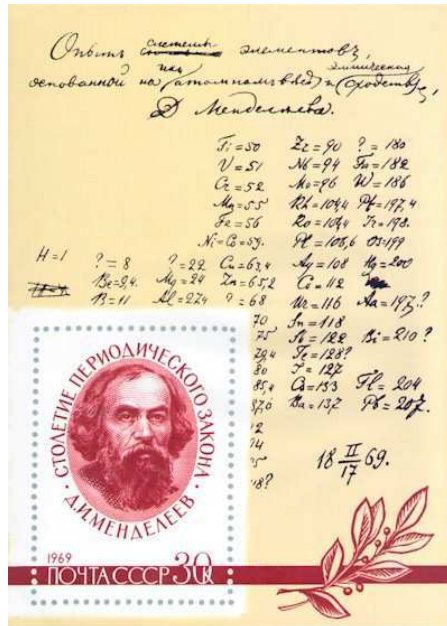 Опытъ системы элементовъ,
основанной на ихъ атомномъ вѣсѣ и химическомъ сходствѣ,
Д. Менделѣева.
Ti=50 Zr=90 ?=180
V=51 Nb=94 Ta=182
Cr=52 Mo=96 W=186
Mn=55 Rh=104,4 Pt=197,4
Fe=56 Ru=104,4 Ir=198.
Ni=Co=59. Pl=106,6 Os=199
H=1 ?=8 ?=22 Cu=63,4 Ag=108 Hg=200
Be=9,4. Mg=24 Zn=65,2 Cd=112
B=11 Al=27,4 ?=68 Ur=116 Au=197?
70 Sn=118
75 Sb=122 Bi=210?
79,4 Te=128?
80 J=127
85,4 Cs=133 Tl=204
87,6 Ba=137 Pb=207.
18 II/17 69.
СТОЛЕТИЕ ПЕРИОДИЧЕСКОГО ЗАКОНА
Д.И.МЕНДЕЛЕЕВ
1969
ПОЧТА СССР 30К